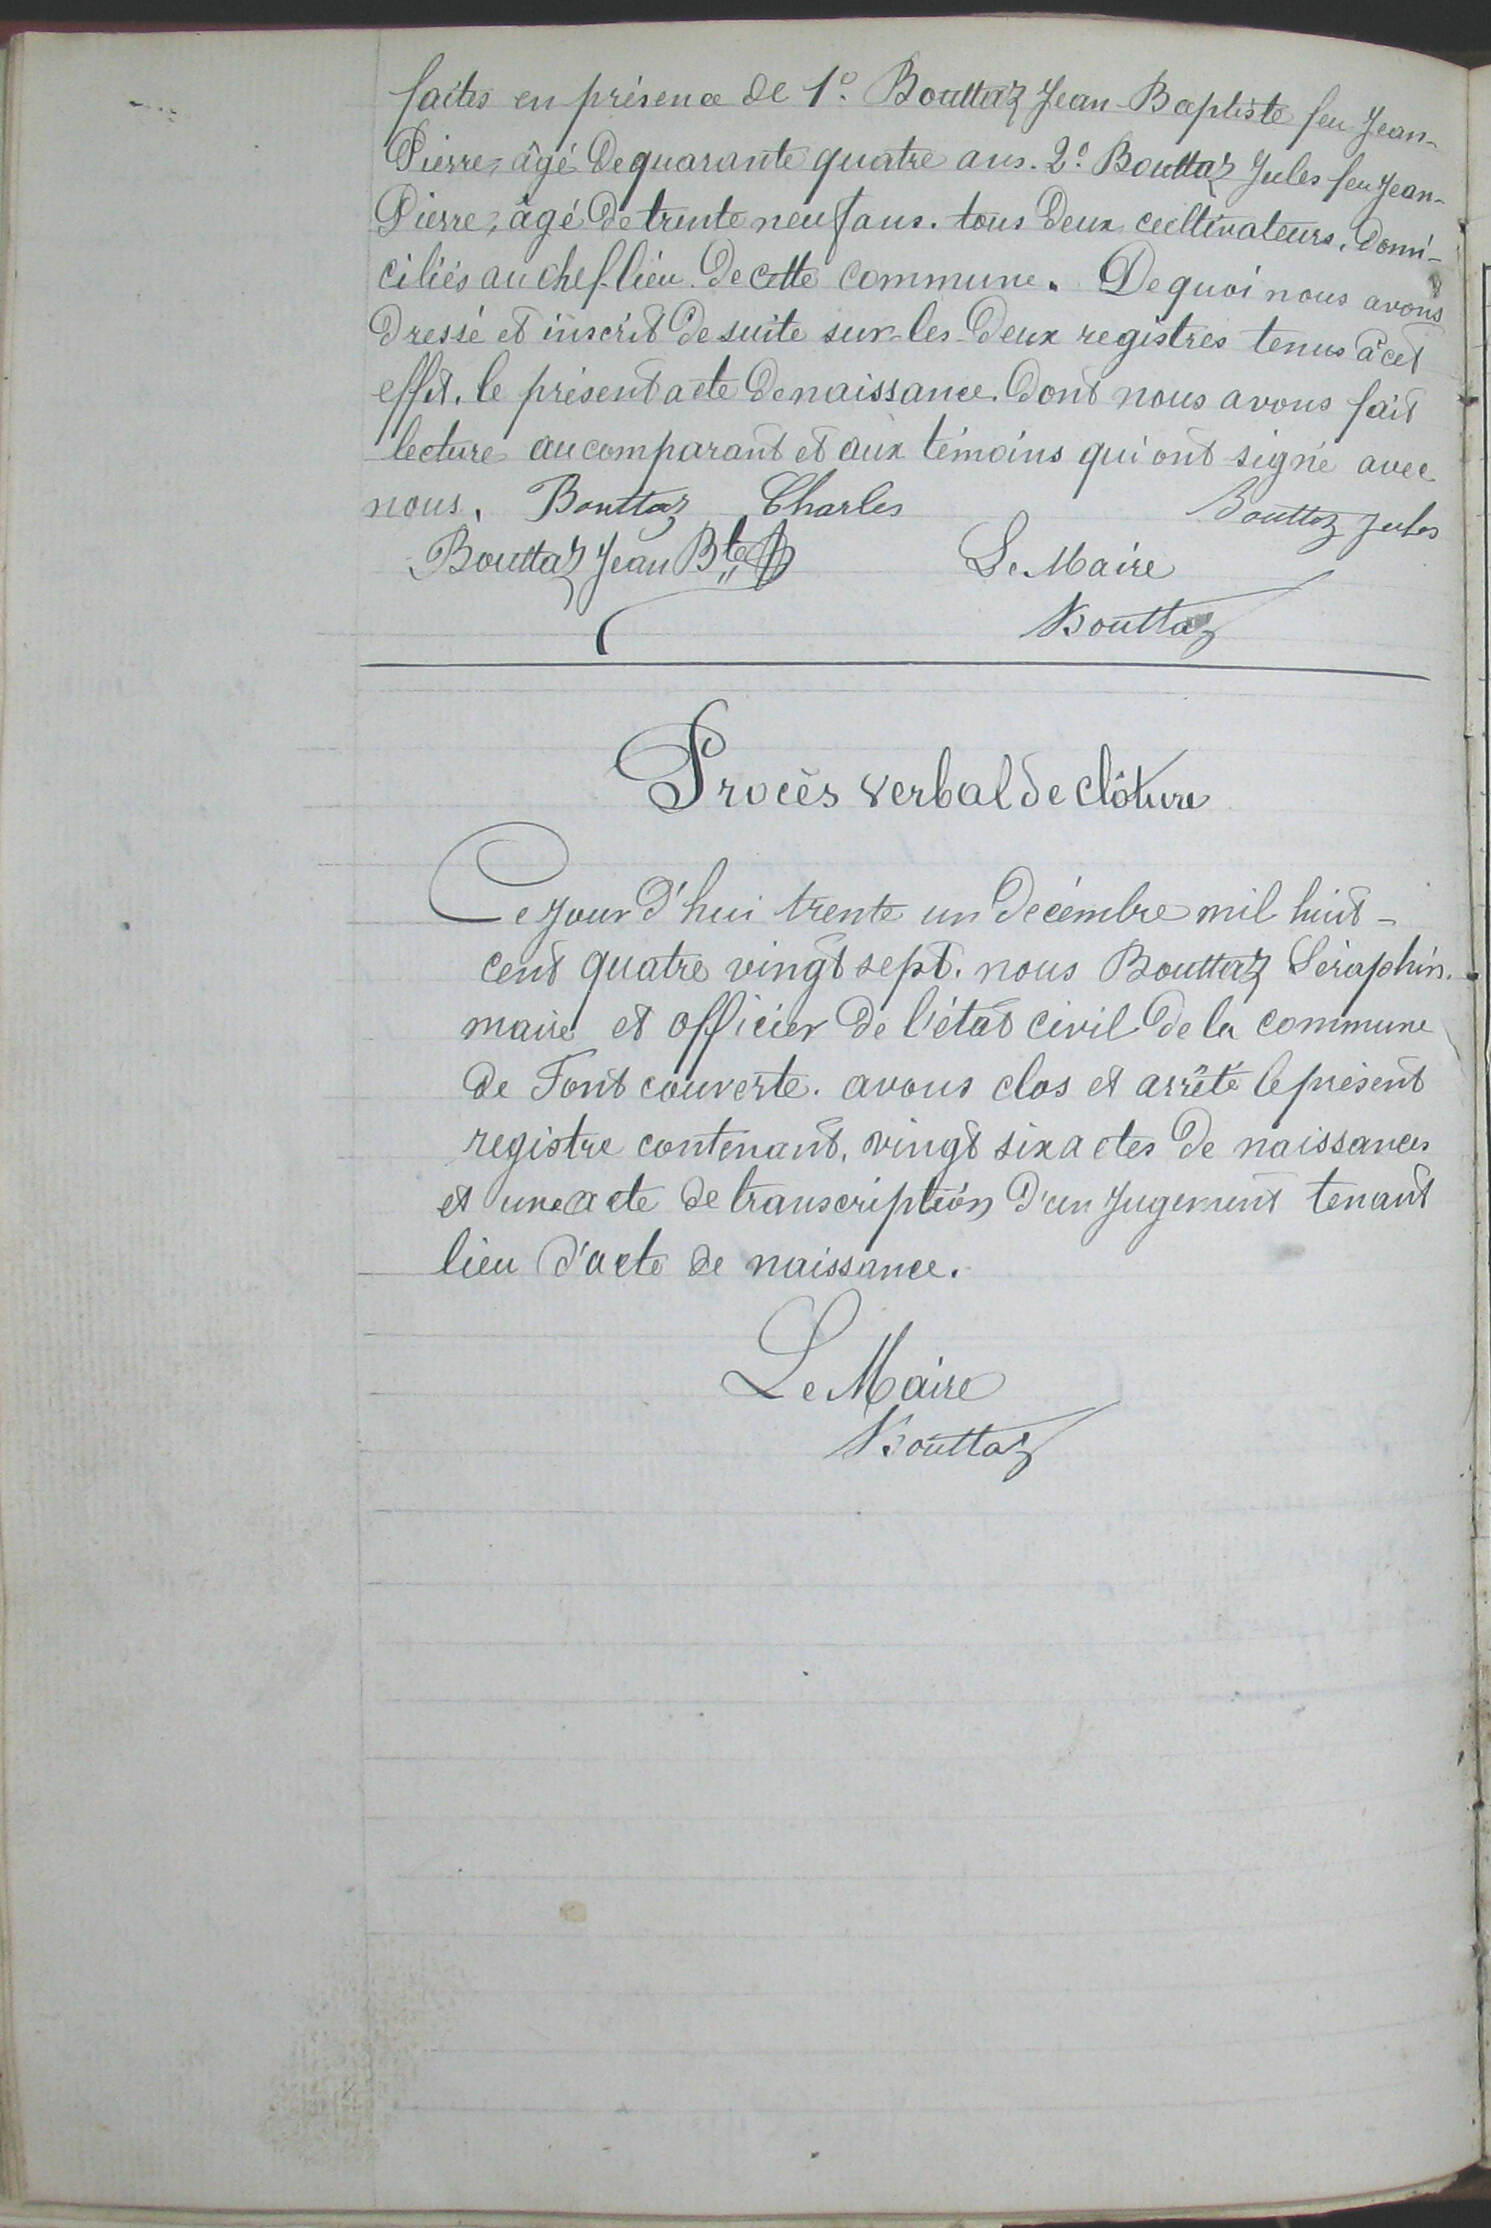 faites en présence de 1º. Bouttaz Jean-Baptiste feu Jean-
Pierre, âgé de quarante quatre ans. 2º. Bouttaz Jules feu Jean-
Pierre, âgé de trente neuf ans. tous deux cultivateurs, domi-
ciliés au chef-lieu de cette commune. De quoi nous avons
dressé et inscrit de suite sur les deux registres tenus à cet
effet, le présent acte de naissance. dont nous avons fait
lecture au comparant et aux témoins qui ont signé avec
nous. Bouttaz Charles Bouttaz Jules
Bouttaz Jean Bte Le Maire
Bouttaz
Procès verbal de clôture
Ce jour d'hui trente un décembre mil huit-
cent quatre vingt sept. nous Bouttaz Séraphin.
maire et officier de l'état civil de la commune
de Font couverte. avons clos et arrêté le présent
registre contenant, vingt six actes de naissances
et une acte de transcription d'un jugement tenant
lieu d'acte de naissance.
Le Maire
Bouttaz